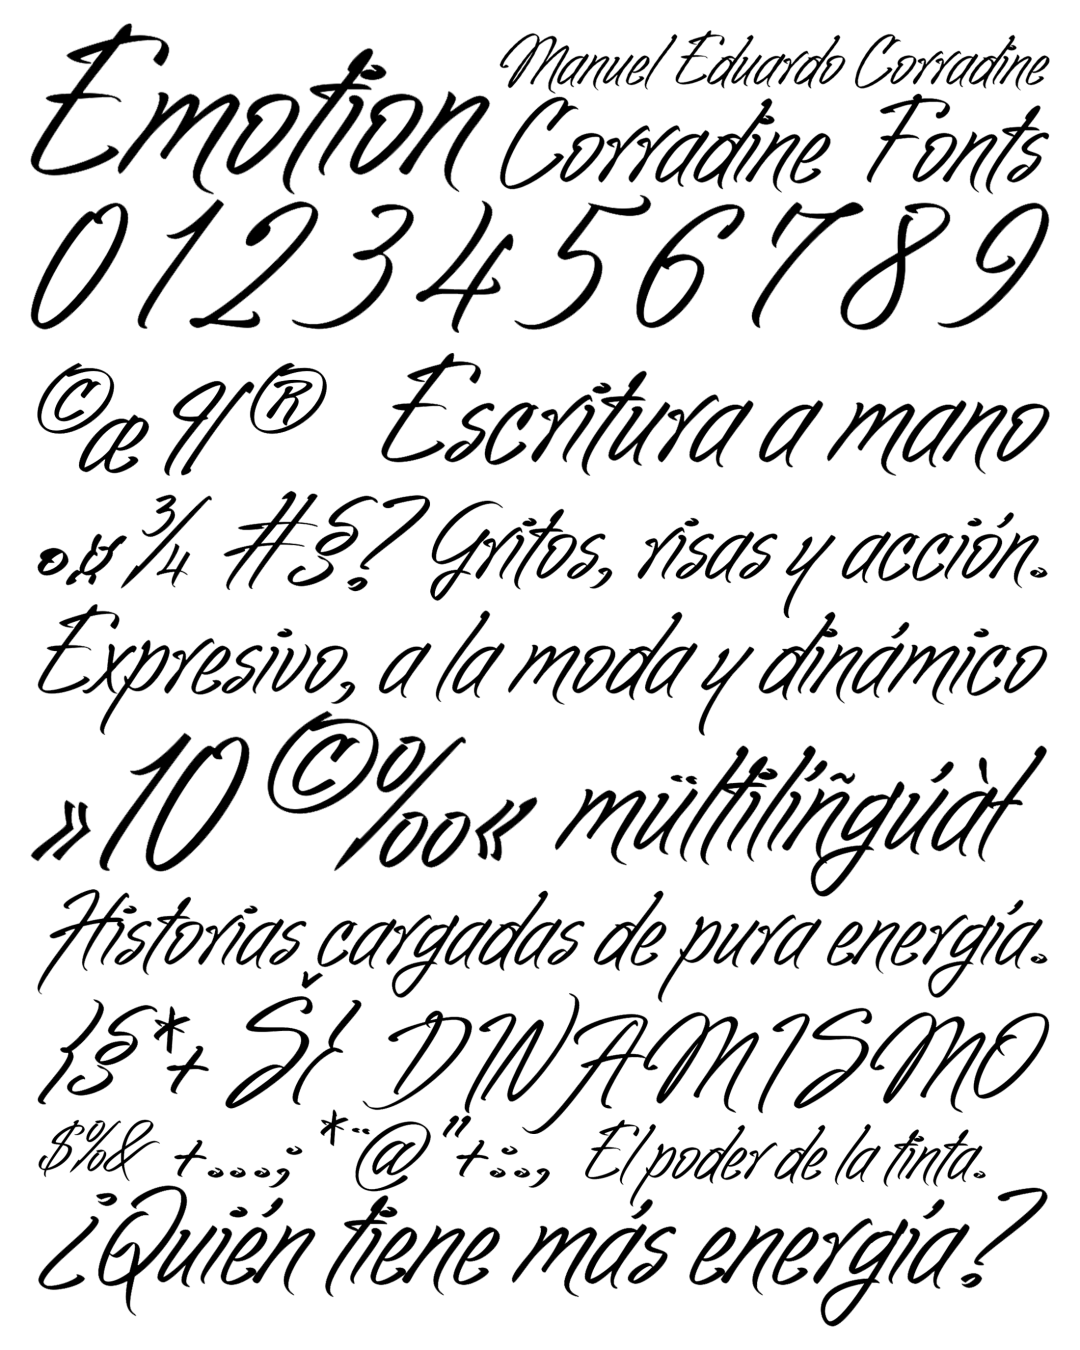 Emotion Manuel Eduardo Corradine
Corradine Fonts
0 1 2 3 4 5 6 7 8 9
©æ¶® Escritura a mano
•¤¾ #§? Gritos, risas y acción.
Expresivo, a la moda y dinámico
»10©‰« mültilíñgúàł
Historias cargadas de pura energía.
}§*+ Š{ DINAMISMO
$%& +...; *¨@"+:., El poder de la tinta.
¿Quién tiene más energía?